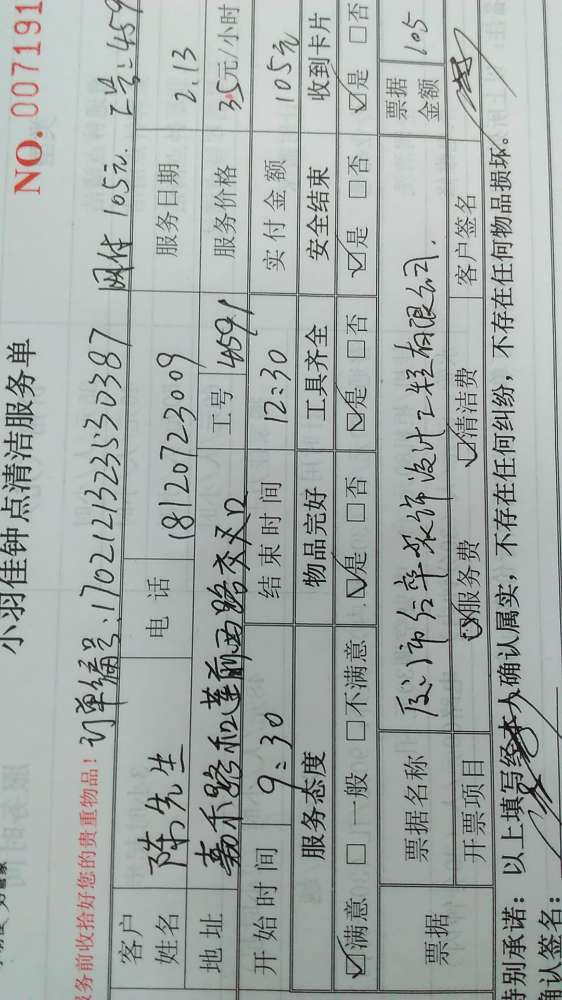 小羽佳钟点清洁服务单
NO.007191
服务前收拾好您的贵重物品! 订单编号:170212132353 0387 网付105元. 工号:459
客户姓名 陈先生 电话 18120723009 服务日期 2.13
地址 嘉禾路和莲前西路交叉口 工号 4591 服务价格 35元/小时
开始时间 9:30 结束时间 12:30 实付金额 105元
服务态度 物品完好 工具齐全 安全结束 收到卡片
☑满意 □一般 □不满意 ☑是 □否 ☑是 □否 ☑是 □否 ☑是 □否
票据 票据名称 厦门市仁华装饰设计工程有限公司. 票据金额 105
开票项目 ☑服务费 ☑清洁费 客户签名
特别承诺:以上填写经本人确认属实,不存在任何纠纷,不存在任何物品损坏。
确认签名: